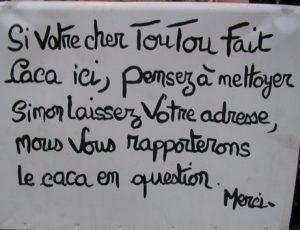 Si Votre cher TouTou Fait
Caca ici, pensez à nettoyer
Sinon laissez Votre adresse,
nous Vous rapporterons
le caca en question.
Merci.